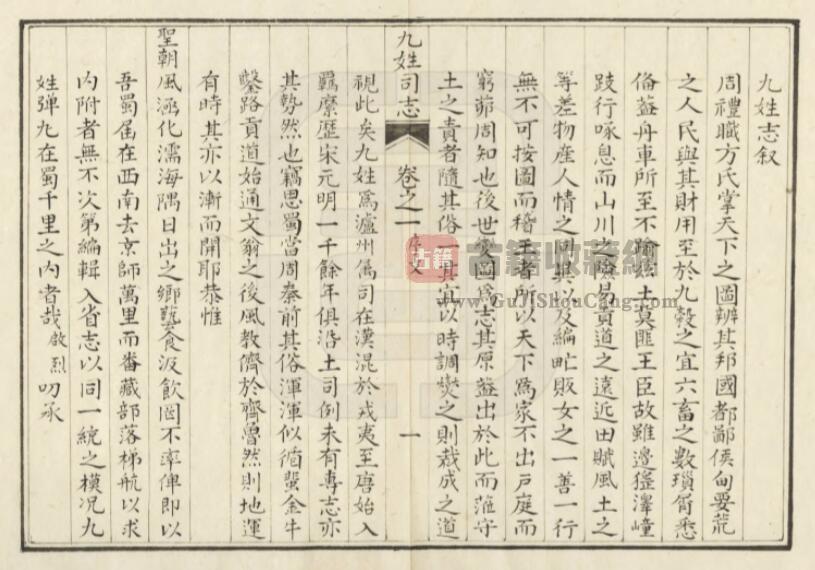 九姓志叙
周禮職方氏掌天下之圖辨其邦國都鄙侯甸要荒
之人民與其財用至於九穀之宜六畜之數瑣屑悉
偹葢舟車所至不踰茲土莫匪王臣故雖邊徭澤㠉
跂行喙息而山川之險易貢道之遠近田賦風土之
等差物産人情之同異以及編甿販女之一善一行
無不可按圖而稽王者所以天下為家不出戶庭而
窮茆周知也後世變圖為志其原葢出於此而蒞守
土之責者隨其俗一其宜以時調爕之則裁成之道
九姓司志
卷之一
序文
一
視此矣九姓爲瀘州僞司在漢混於戎夷至唐始入
羈縻歴宋元明一千餘年俱沿土司例未有專志亦
其勢然也竊思蜀當周秦前其俗渾渾似循蜚金牛
鑿路貢道始通文翁之後風教儕於齊魯然則地運
有時其亦以漸而開耶恭惟
聖朝風涵化濡海隅日出之鄉蓺食汲飲罔不率俾即以
吾蜀僞在西南去京師萬里而番藏部落梯航以求
内附者無不次第編輯入省志以同一統之模况九
姓弹丸在蜀千里之内者哉啟烈叨承
古籍
古籍收藏網
www.GuJiShouCang.com